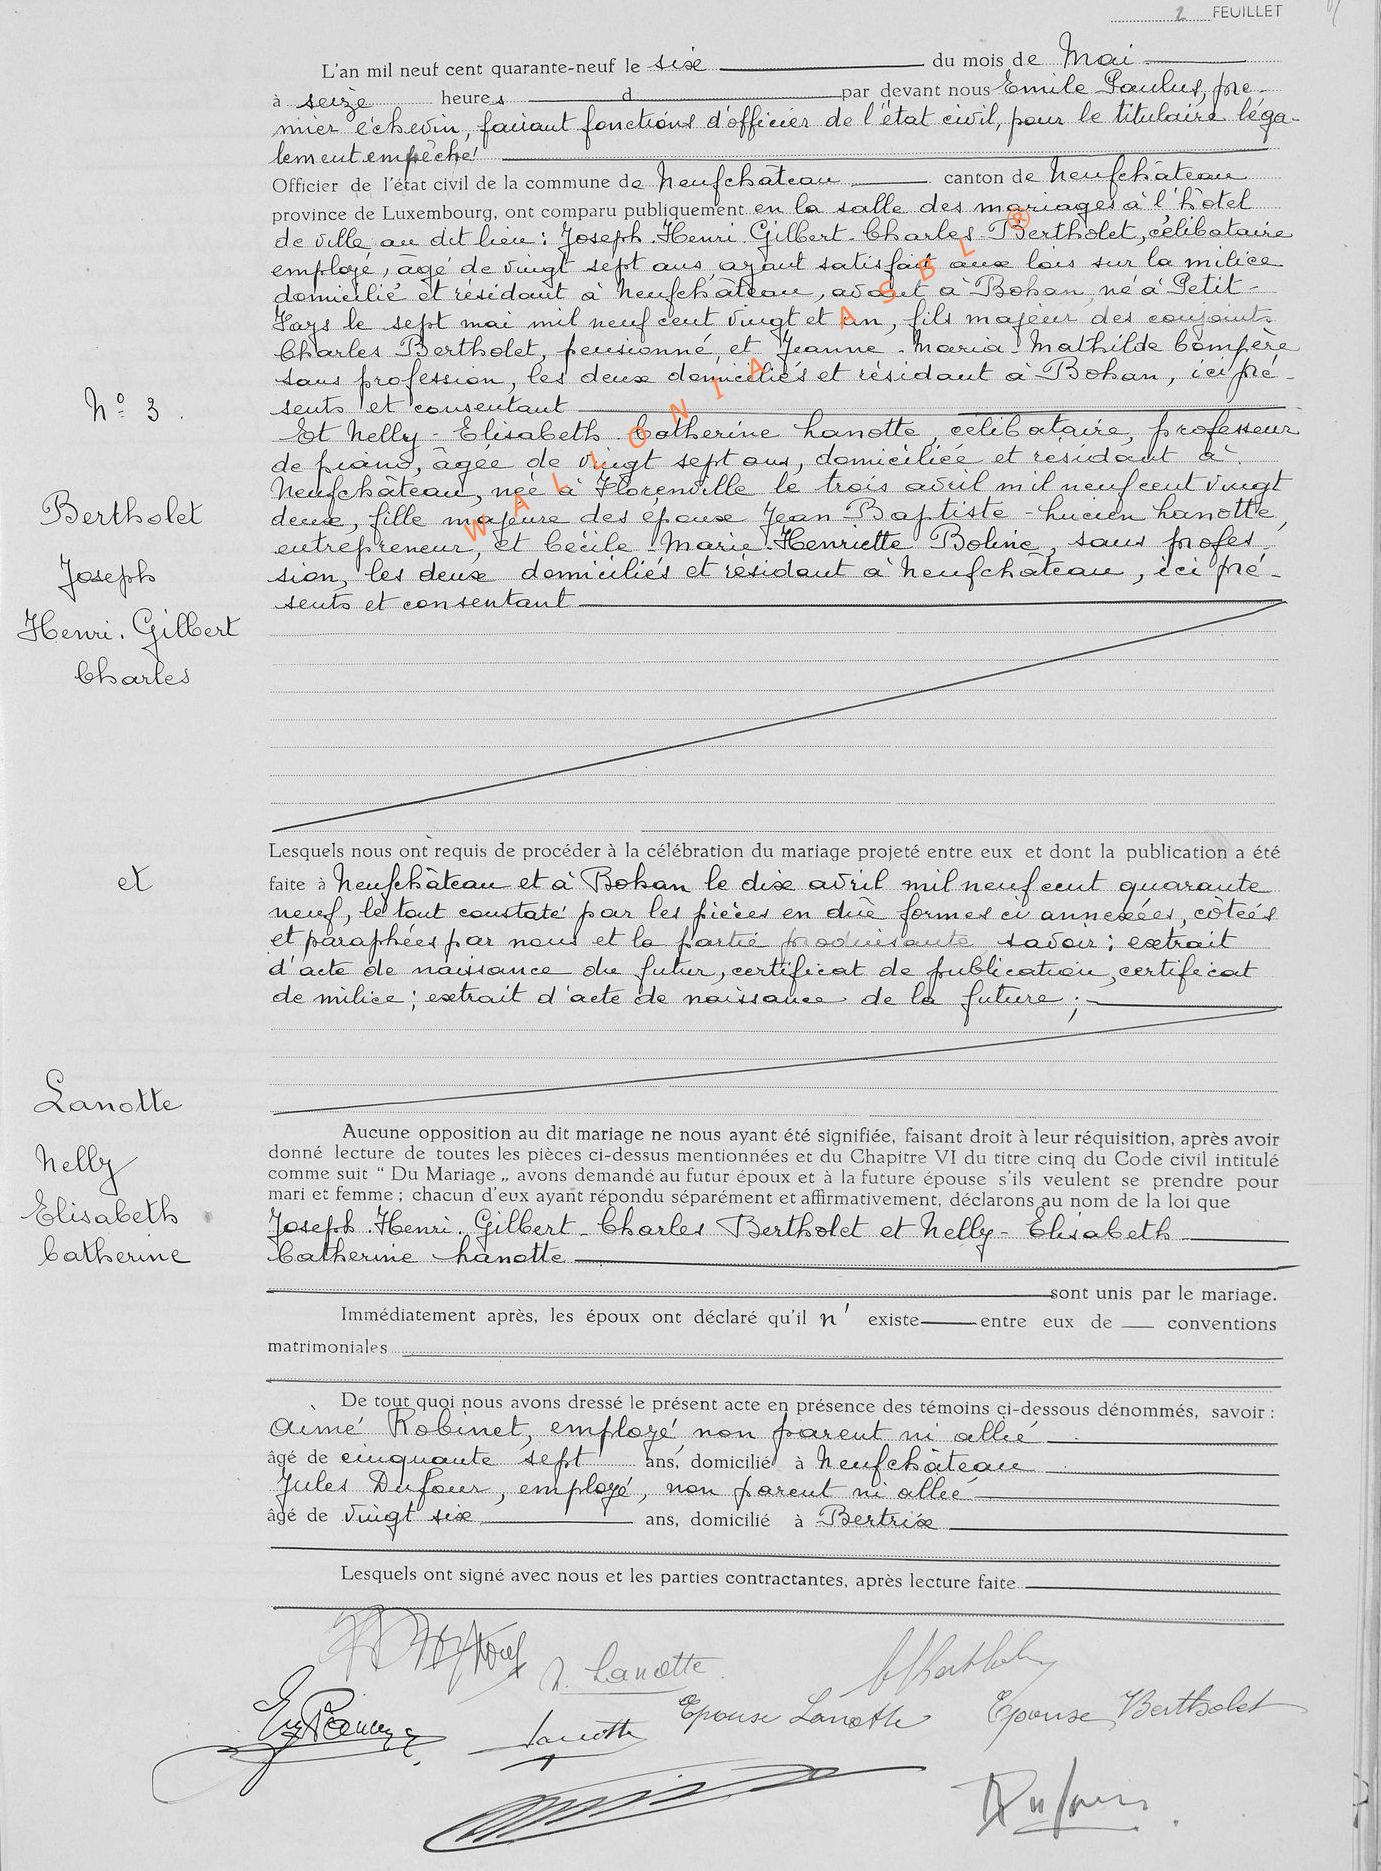 2 FEUILLET
L'an mil neuf cent quarante-neuf le six du mois de Mai
à seize heures d par devant nous Emile Paulus, pre-
mier échevin, faisant fonctions d'officier de l'état civil, pour le titulaire léga-
lement empêché
Officier de l'état civil de la commune de Neufchâteau canton de Neufchâteau
province de Luxembourg, ont comparu publiquement en la salle des mariages à l'hôtel
de ville au dit lieu : Joseph-Henri-Gilbert-Charles Bertholet, célibataire
employé, âgé de vingt sept ans, ayant satisfait aux lois sur la milice
domicilié et résidant à Neufchâteau, avant à Bohan, né à Petit-
Fays le sept mai mil neuf cent vingt et un, fils majeur des conjoints
Charles Bertholet, pensionné, et Jeanne-Maria-Mathilde Compère
sans profession, les deux domiciliés et résidant à Bohan, ici pré-
sents et consentant
Et Nelly-Elisabeth-Catherine Lanotte, célibataire, professeur
de piano, âgée de vingt sept ans, domiciliée et résidant à
Neufchâteau, née à Florenville le trois avril mil neuf cent vingt
deux, fille majeure des époux Jean-Baptiste-Lucien Lanotte,
entrepreneur, et Cécile-Marie-Henriette Boline, sans profes-
sion, les deux domiciliés et résidant à Neufchâteau, ici pré-
sents et consentant
WALLONIA ASBL ®
N° 3.
Bertholet
Joseph
Henri-Gilbert
Charles
et
Lanotte
Nelly
Elisabeth
Catherine
Lesquels nous ont requis de procéder à la célébration du mariage projeté entre eux et dont la publication a été
faite à Neufchâteau et à Bohan le dix avril mil neuf cent quarante
neuf, le tout constaté par les pièces en due formes ci annexées, côtées
et paraphées par nous et la partie produisante savoir ; extrait
d'acte de naissance du futur, certificat de publication, certificat
de milice ; extrait d'acte de naissance de la future ;
Aucune opposition au dit mariage ne nous ayant été signifiée, faisant droit à leur réquisition, après avoir
donné lecture de toutes les pièces ci-dessus mentionnées et du Chapitre VI du titre cinq du Code civil intitulé
comme suit “ Du Mariage „ avons demandé au futur époux et à la future épouse s'ils veulent se prendre pour
mari et femme ; chacun d'eux ayant répondu séparément et affirmativement, déclarons au nom de la loi que
Joseph-Henri-Gilbert-Charles Bertholet et Nelly-Elisabeth
Catherine Lanotte
sont unis par le mariage.
Immédiatement après, les époux ont déclaré qu'il n' existe entre eux de conventions
matrimoniales
De tout quoi nous avons dressé le présent acte en présence des témoins ci-dessous dénommés, savoir :
Aimé Robinet, employé, non parent ni allié
âgé de cinquante sept ans, domicilié à Neufchâteau
Jules Dufour, employé, non parent ni allié
âgé de vingt six ans, domicilié à Bertrix
Lesquels ont signé avec nous et les parties contractantes, après lecture faite
N. Lanotte
Lanotte Epouse Lanotte Epouse Bertholet
Dufour